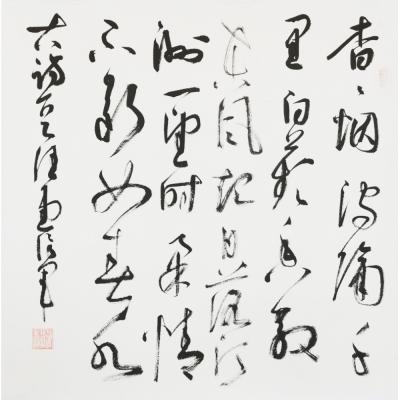 杳々烟波隔千
里白蘋香散
东风起日落汀
洲一望时柔情
不断如春水
古诗